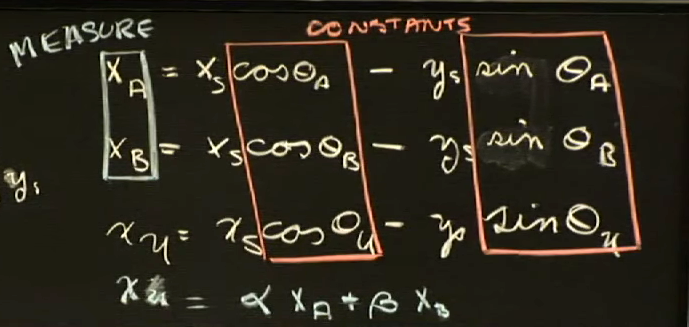 MEASURE CONSTANTS
X_A = x_s cosθ_A − y_s sin θ_A
X_B = x_s cosθ_B − y_s sin θ_B
y_s
x_u = x_s cosθ_u − y_s sinθ_u
x_u = α X_A + β X_B